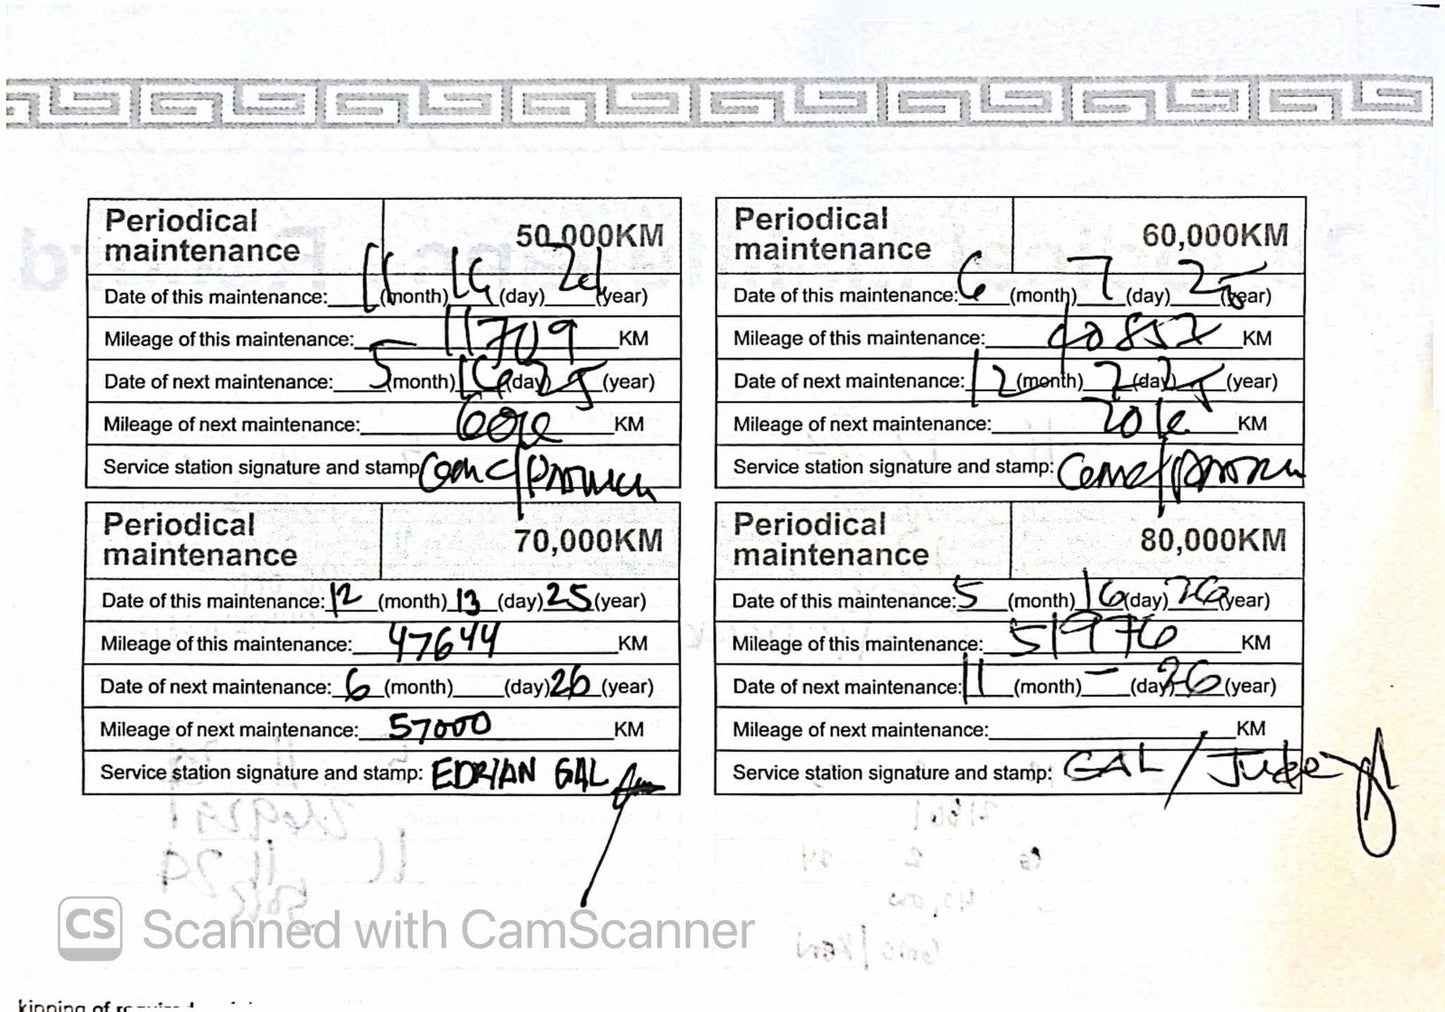 Periodical maintenance 50,000KM
Date of this maintenance: 11 (month) 14 (day) 24 (year)
Mileage of this maintenance: 11709 KM
Date of next maintenance: 5 (month) (day) 25 (year)
Mileage of next maintenance: KM
Service station signature and stamp
Periodical maintenance 60,000KM
Date of this maintenance: 6 (month) 7 (day) 25 (year)
Mileage of this maintenance: 40852 KM
Date of next maintenance: 12 (month) 7 (day) 25 (year)
Mileage of next maintenance: 70k KM
Service station signature and stamp:
Periodical maintenance 70,000KM
Date of this maintenance: 12 (month) 13 (day) 25 (year)
Mileage of this maintenance: 47644 KM
Date of next maintenance: 6 (month) (day) 26 (year)
Mileage of next maintenance: 57000 KM
Service station signature and stamp: EDRIAN GAL
Periodical maintenance 80,000KM
Date of this maintenance: 5 (month) 16 (day) 26 (year)
Mileage of this maintenance: 51976 KM
Date of next maintenance: 11 (month) - (day) 26 (year)
Mileage of next maintenance: KM
Service station signature and stamp: GAL / Jude
CS Scanned with CamScanner